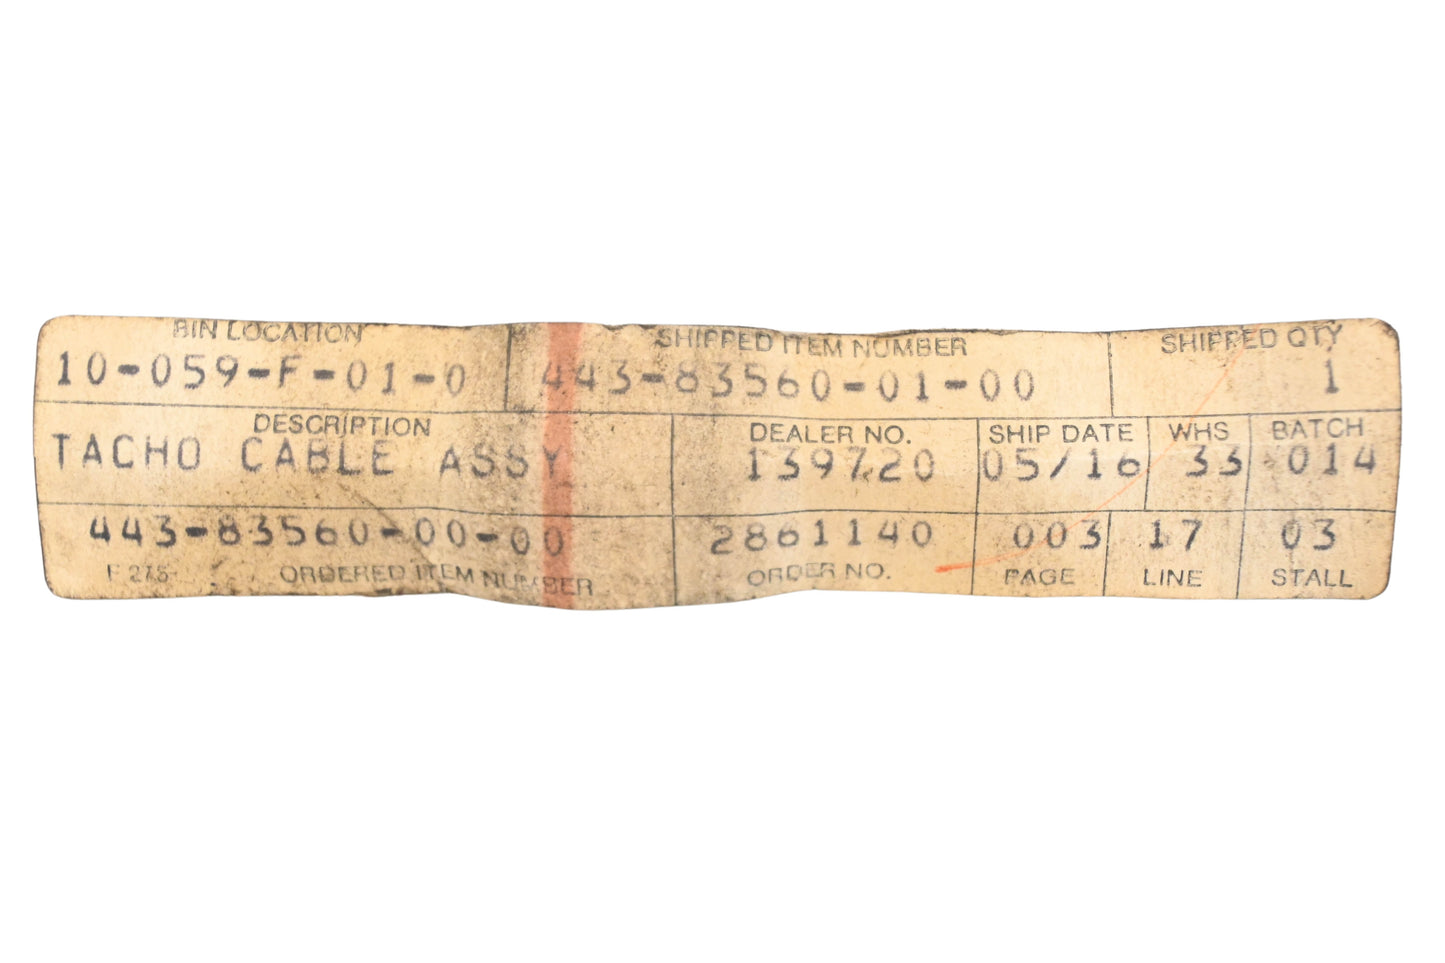 BIN LOCATION SHIPPED ITEM NUMBER SHIPPED QTY
10-059-F-01-0 443-83560-01-00 1
DESCRIPTION DEALER NO. SHIP DATE WHS BATCH
TACHO CABLE ASSY 139720 05/16 33 014
443-83560-00-00 2861140 003 17 03
F 275 ORDERED ITEM NUMBER ORDER NO. PAGE LINE STALL